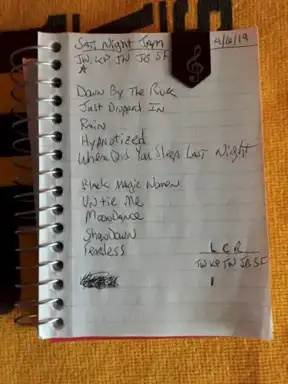 Sat Night Jam 4/6/19
JW KP JW JB SF
Down By The River
Just Dropped In
Rain
Hypnotized
Where Did You Sleep Last Night
Black Magic Women
Untie Me
MoonDance
ShowDown
Fearless
L C R
JW KP JW JB SF